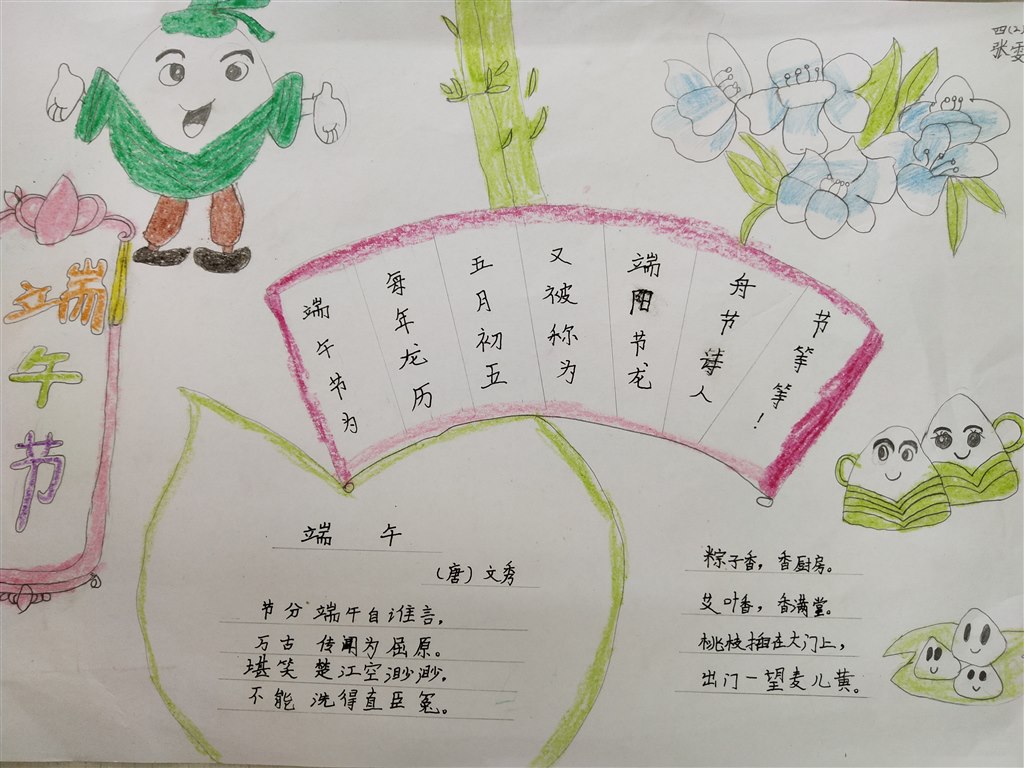 四(2)
张雯
端午节
端午节为
每年龙历
五月初五
又被称为
端阳节龙
舟节诗人
节等等!
端午
(唐)文秀
节分端午自谁言,
万古传闻为屈原。
堪笑楚江空渺渺,
不能洗得直臣冤。
粽子香,香厨房。
艾叶香,香满堂。
桃枝插在大门上,
出门一望麦儿黄。